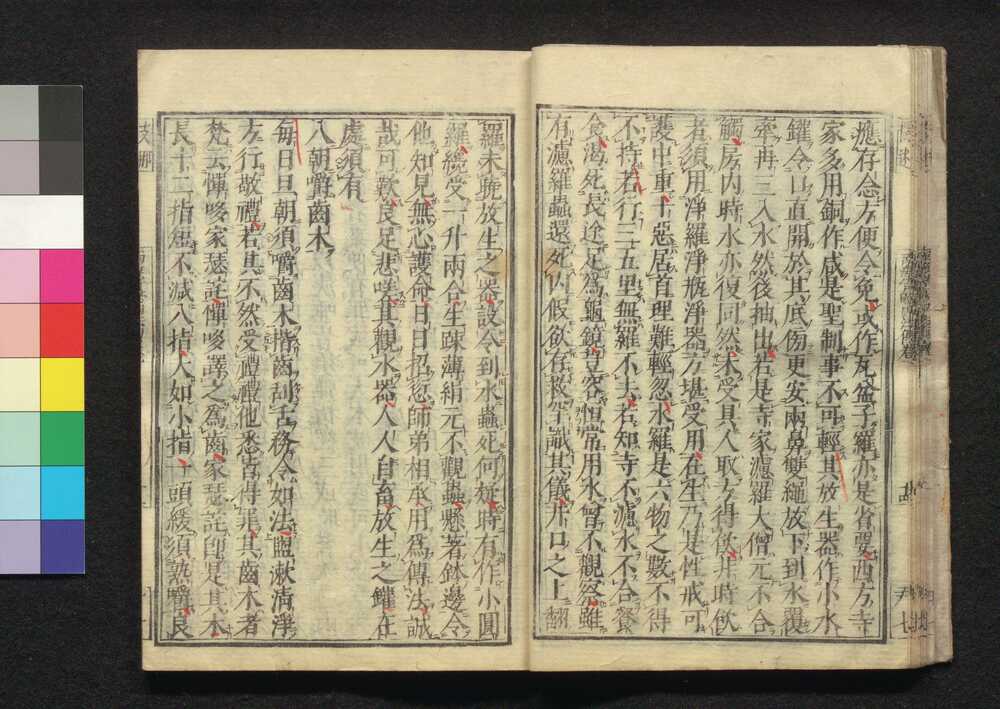 應存念方便令免或作瓦盆子羅亦是省要西方寺
家多用銅作咸是聖制事不可輕其放生器作小水
鑵令口直開於其底傍更安兩鼻雙繩放下到水覆
牽再三入水然後抽出若是寺家濾羅大僧元不合
觸房内時水亦復同然未受具人取方得飲非時飲
者須用淨羅淨瓶淨器方堪受用在生乃是性戒可
護中重十惡居首理難輕忽水羅是六物之數不得
不持若行三五里無羅不去若知寺不濾水不合餐
食渴死長途足爲龜鏡豈容恒常用水曾不觀察雖
有濾羅蟲還死内假欲存救罕識其儀井口之上翻
羅未曉放生之器設令到水蟲死何疑時有作小圓
羅纔受一升兩合生疎薄絹元不觀蟲懸著鉢邊令
他知見無心護命日日招愆師弟相承用爲傳法誠
哉可歎良足悲嗟其觀水器人人自畜放生之鑵在
處須有
八朝嚼齒木
毎日旦朝須嚼齒木揩齒刮舌務令如法盥漱清淨
方行敬禮若其不然受禮禮他悉皆得罪其齒木者
梵云憚哆家瑟詫憚哆譯之爲齒家瑟詫即是其木
長十二指短不減八指大如小指一頭緩須熟嚼良